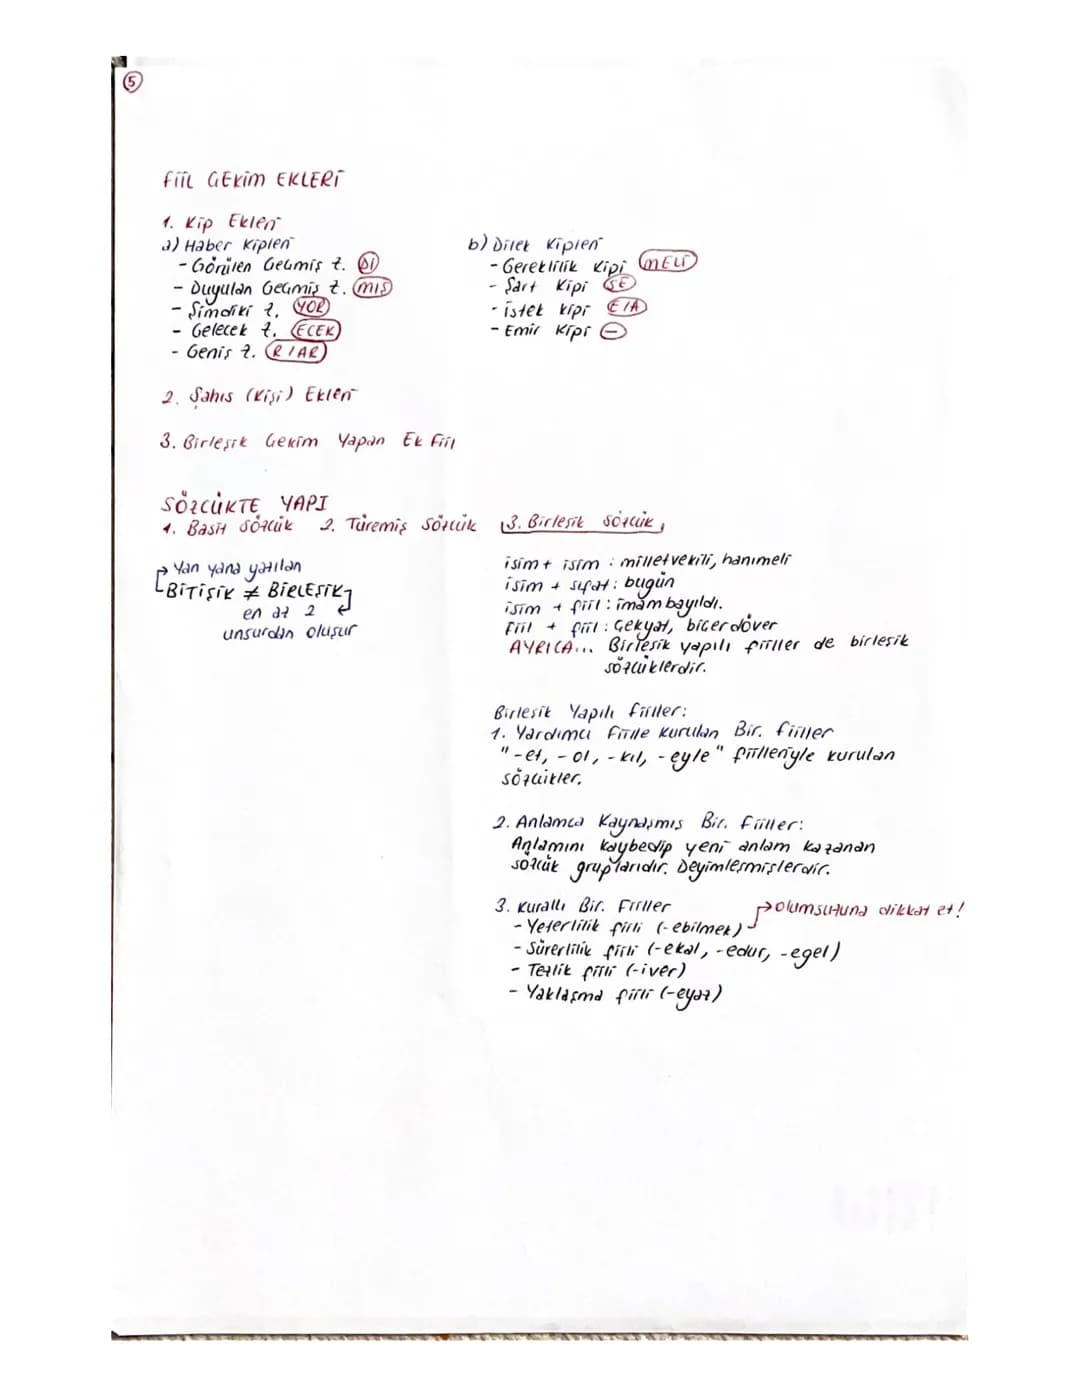 5
FİİL ÇEKİM EKLERİ
1. Kip Ekleri
a) Haber Kipleri
- Görülen Geçmiş z. Dİ
- Duyulan Geçmiş z. MIŞ
- Şimdiki z. YOR
- Gelecek z. ECEK
- Geniş z. R/AR
b) Dilek Kipleri
- Gereklilik Kipi MELİ
- Şart Kipi SE
- İstek kipi E/A
- Emir Kipi -
2. Şahıs (Kişi) Ekleri
3. Birleşik Çekim Yapan Ek Fiil
SÖZCÜKTE YAPI
1. Basit Sözcük 2. Türemiş Sözcük 3. Birleşik Sözcük
→ Yan yana yazılan
BİTİŞİK ≠ BİRLEŞİK
en az 2
unsurdan oluşur
isim + isim : milletvekili, hanımeli
isim + sıfat : bugün
isim + fiil : imambayıldı.
Fiil + fiil : Çekyat, biçerdöver
AYRICA... Birleşik yapılı fiiller de birleşik
sözcüklerdir.
Birleşik Yapılı fiiller:
1. Yardımcı Fiille Kurulan Bir. fiiller
"-et, -ol, -kıl, -eyle" fiilleriyle kurulan
sözcükler.
2. Anlamca Kaynaşmış Bir. Fiiller:
Anlamını kaybedip yeni anlam kazanan
sözcük gruplarıdır. Deyimleşmişlerdir.
3. Kurallı Bir. Fiiller
→ olumsuzuna dikkat et!
- Yeterlilik fiili (-ebilmek)
- Sürerlilik fiili (-ekal, -edur, -egel)
- Tezlik fiili (-iver)
- Yaklaşma fiili (-eyaz)